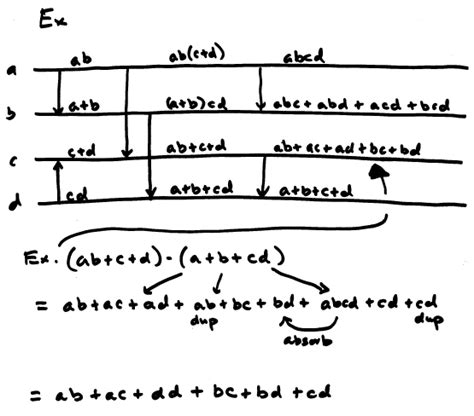 Ex
ab ab(c+d) abcd
a
a+b (a+b)cd abc + abd + acd + bcd
b
c+d ab+c+d ab+ac+ad+bc+bd
c
cd a+b+cd a+b+c+d
d
Ex. (ab+c+d) - (a+b+cd)
= ab+ac+ad + ab+bc+bd + abcd+cd+cd
dup dup
absorb
= ab +ac + ad + bc+bd +cd